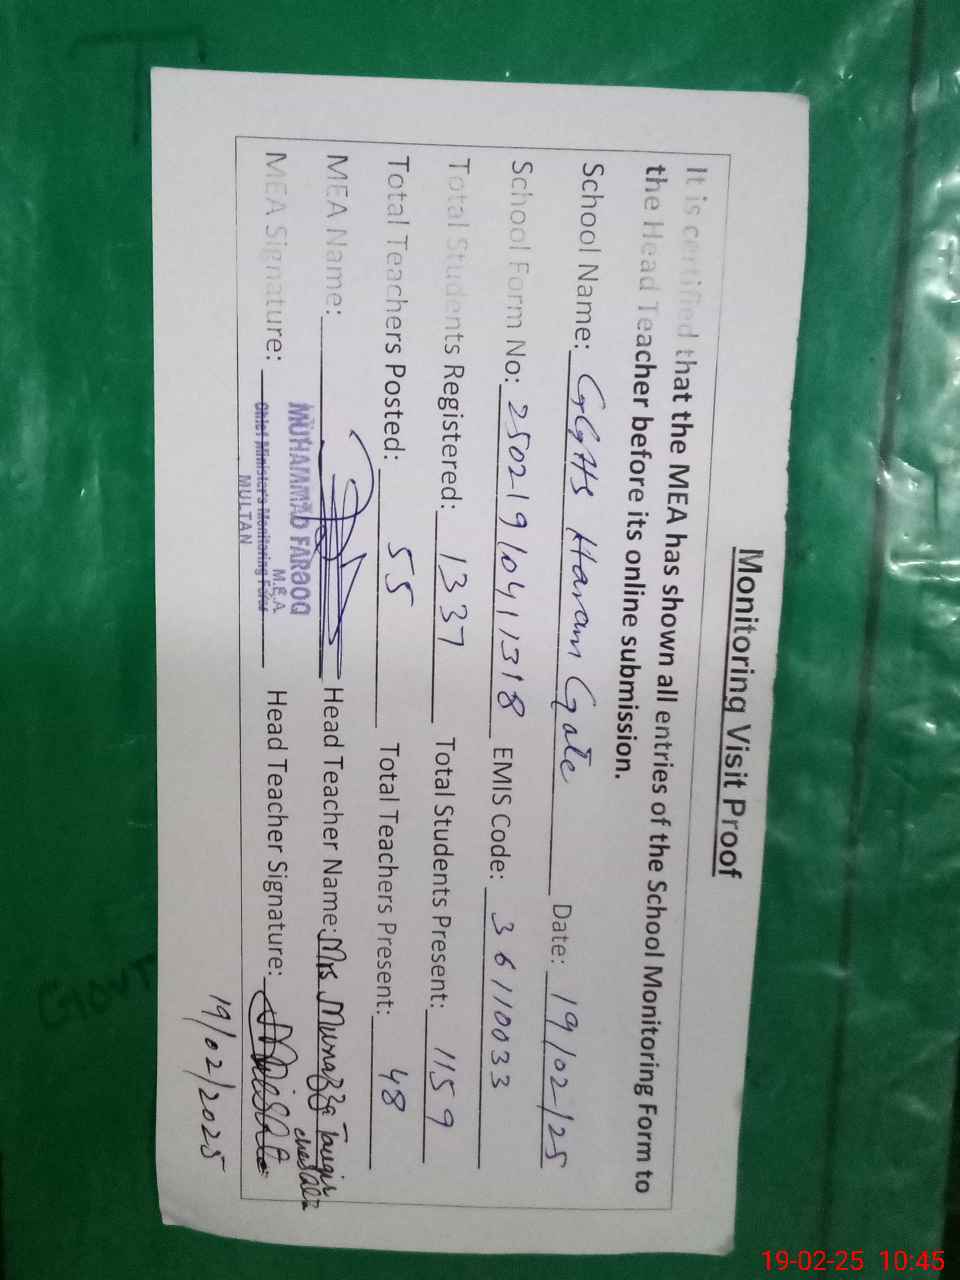 Monitoring Visit Proof
It is certified that the MEA has shown all entries of the School Monitoring Form to
the Head Teacher before its online submission.
School Name: GGHS Haram Gate Date: 19/02/25
School Form No: 25021910411318 EMIS Code: 36110033
Total Students Registered: 1337 Total Students Present: 1159
Total Teachers Posted: 55 Total Teachers Present: 48
MEA Name: Head Teacher Name: Mrs Munazza
MUHAMMAD FAROOQ
M.E.A
MEA Signature: Chief Minister's Monitoring Force Head Teacher Signature:
MULTAN
19/02/2025
GOVT
19-02-25 10:45